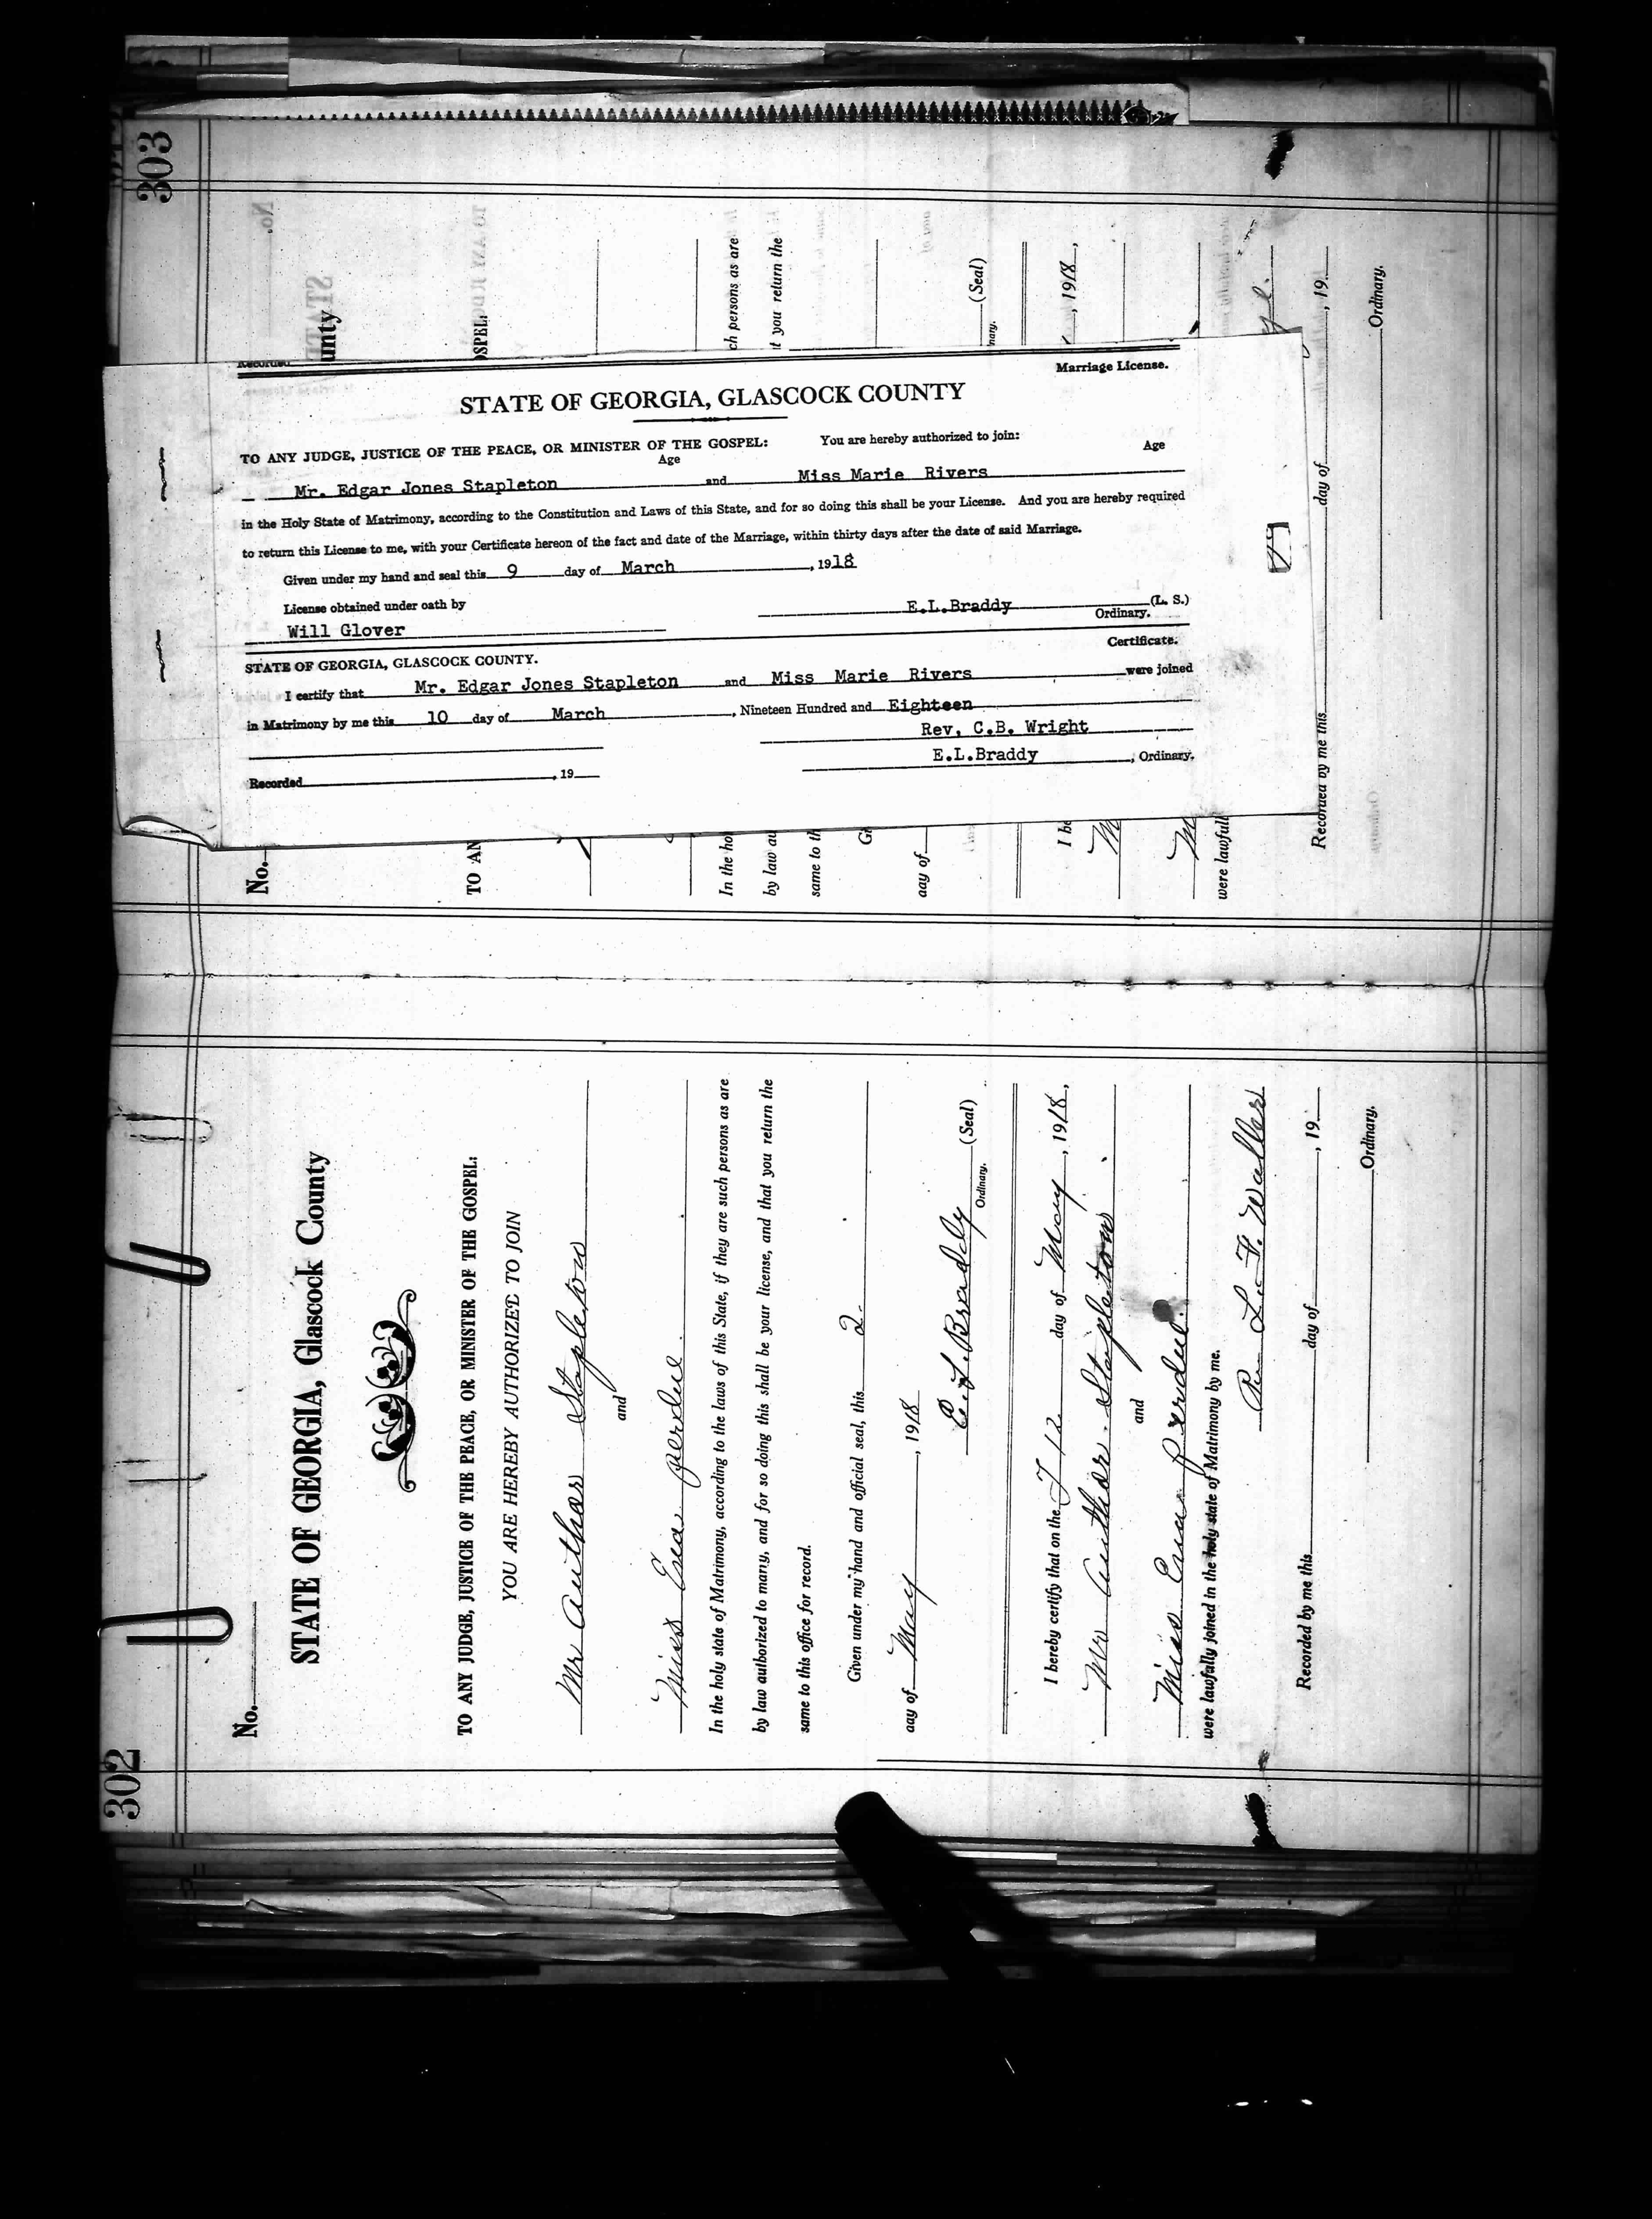 303
No.
unty
SPEL:
ch persons as are
t you return the
(Seal)
nary.
, 1918,
, 19
Ordinary.
day of
Recorded by me this
No.
TO AN
In the ho
by law au
same to th
Gi
day of
I he
M
M
were lawfull
Recorded
Marriage License.
STATE OF GEORGIA, GLASCOCK COUNTY
TO ANY JUDGE, JUSTICE OF THE PEACE, OR MINISTER OF THE GOSPEL: You are hereby authorized to join:
Age Age
Mr. Edgar Jones Stapleton and Miss Marie Rivers
in the Holy State of Matrimony, according to the Constitution and Laws of this State, and for so doing this shall be your License. And you are hereby required
to return this License to me, with your Certificate hereon of the fact and date of the Marriage, within thirty days after the date of said Marriage.
Given under my hand and seal this 9 day of March, 1918
License obtained under oath by E.L.Braddy (L. S.)
Will Glover Ordinary.
Certificate.
STATE OF GEORGIA, GLASCOCK COUNTY.
I certify that Mr. Edgar Jones Stapleton and Miss Marie Rivers were joined
in Matrimony by me this 10 day of March, Nineteen Hundred and Eighteen
Rev, C.B. Wright
E.L.Braddy, Ordinary.
Recorded, 19
302
No.
STATE OF GEORGIA, Glascock County
TO ANY JUDGE, JUSTICE OF THE PEACE, OR MINISTER OF THE GOSPEL:
YOU ARE HEREBY AUTHORIZED TO JOIN
Mr Author Stapleton
and
Miss Ena perdue
In the holy state of Matrimony, according to the laws of this State, if they are such persons as are
by law authorized to marry, and for so doing this shall be your license, and that you return the
same to this office for record.
Given under my hand and official seal, this 2
day of May, 1918
E. L. Braddy (Seal)
Ordinary.
I hereby certify that on the 12 day of May, 1918,
Mr Author Stapleton
and
Miss Ena Perdue
were lawfully joined in the holy state of Matrimony by me.
L. F. Waller
Recorded by me this day of, 19
Ordinary.